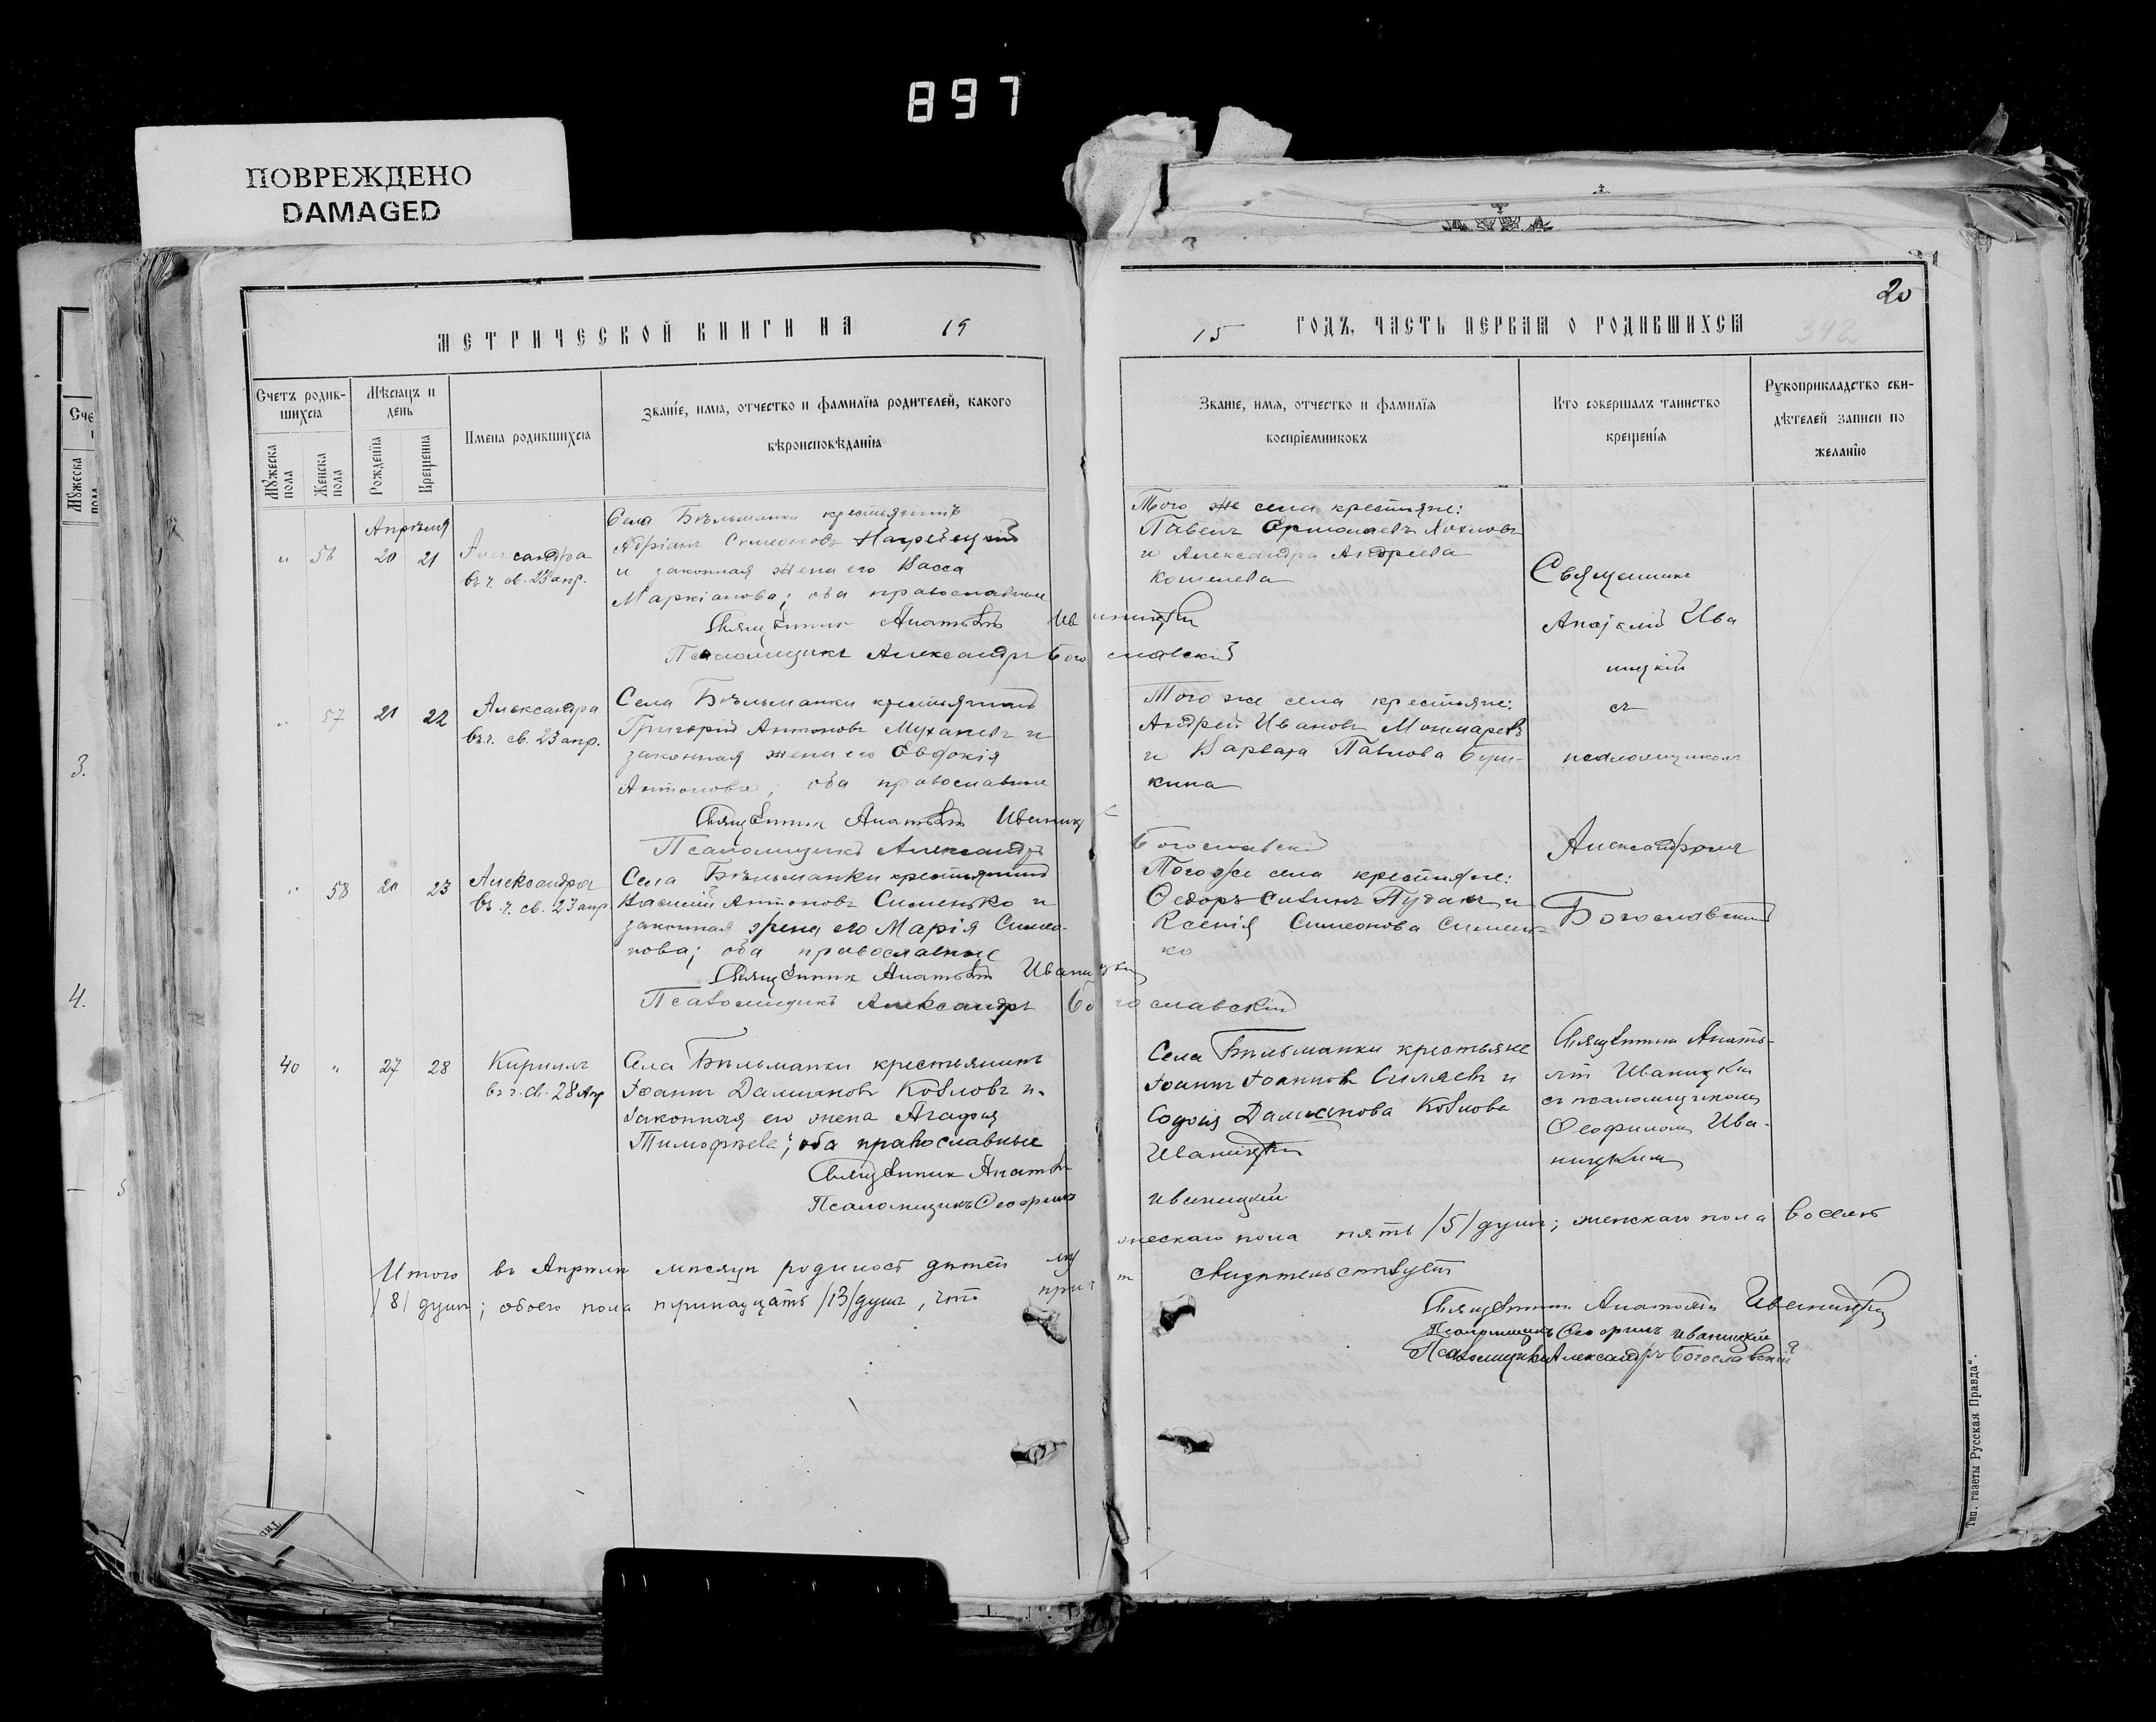 897
ПОВРЕЖДЕНО
DAMAGED
20
МЕТРИЧЕСКОЙ КНИГИ НА 19
15 ГОДЪ, ЧАСТЬ ПЕРВАЯ О РОДИВШИХСЯ
342
Счетъ родив-
шихся
Мѣсяцъ и
день
Имена родившихся
Званіе, имя, отчество и фамилія родителей, какого
вѣроисповѣданія
Мужеска
пола
Женска
пола
Рожденія
Крещенія
Званіе, имя, отчество и фамилія
воспріемниковъ
Кто совершалъ таинство
крещенія
Рукоприкладство сви-
дѣтелей записи по
желанію
Апрѣля
" 56 20 21 Александра
въ ч. св. 23 апр.
Села Бѣльманки крестьянинъ
Адріанъ Симеоновъ
и законная жена его Васса
Маркіанова; оба православные
Священникъ Анатолій Иваницкій
Псаломщикъ Александръ Богославскій
Того же села крестьяне:
Павелъ Ермолаевъ Хохловъ
и Александра Андреева
Кошелева
Священникъ
Анатолій Ива
ницкій
съ
псаломщикомъ
Александромъ
Богославскимъ
" 57 21 22 Александра
въ ч. св. 23 апр.
Села Бѣльманки крестьянинъ
Григорій Антоновъ Муханевъ и
законная жена его Евдокія
Антонова; оба православные
Священникъ Анатолій Иваницк
Псаломщикъ Александръ
Богославскій
Того же села крестьяне:
Андрей Ивановъ
и Варвара Павлова Буш-
кина
" 58 21 23 Александра
въ ч. св. 23 апр.
Села Бѣльманки крестьянинъ
Василій Антоновъ Сименько и
законная жена его Марія Симео-
нова; оба православные
Священникъ Анатолій Иваницкій
Псаломщикъ Александръ Богославскій
Того же села крестьяне:
Ѳедоръ Савинъ и
Ксенія Симеонова Сименъ-
ко
40 " 27 28 Кириллъ
въ ч. св. 28 Апр
Села Бѣльманки крестьянинъ
Іоаннъ Даміановъ Козловъ и
законная его жена Агафія
Тимофѣева; оба православные
Священникъ Анатолій
Иваницкій
Псаломщикъ Ѳеофилъ
Иваницкій
Села Бѣльманки крестьяне
Іоаннъ Іоанновъ Силяевъ и
Софія Даміанова Козлова
Священникъ Анато-
лій Иваницкій
съ псаломщикомъ
Ѳеофиломъ Ива-
ницкимъ
Итого въ Апрѣлѣ мѣсяцѣ родилось дѣтей мужескаго пола пять /5/ душъ; женскаго пола восемь
/8/ душъ; обоего пола тринадцать /13/ душъ, что
свидѣтельствуетъ
Священникъ Анатолій Иваницкій
Псаломщикъ Ѳеофилъ Иваницкій
Псаломщикъ Александръ Богославскій
Тип. газеты Русская Правда".
3.
4.
5